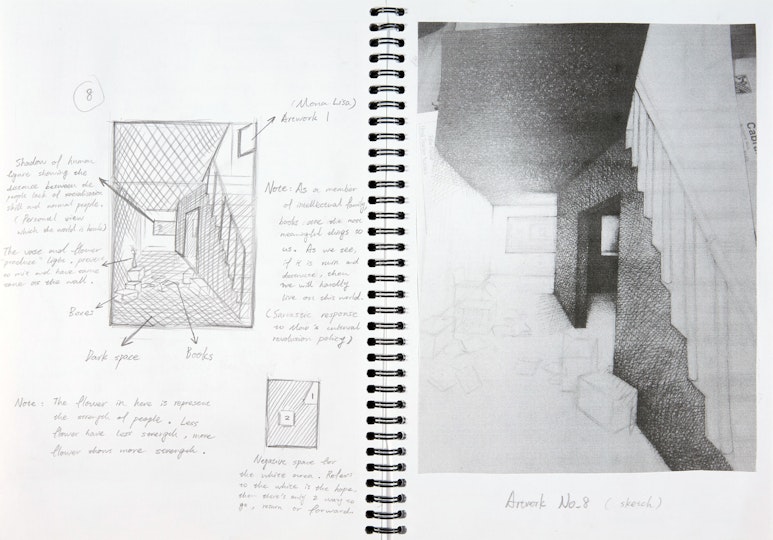 8
(Mona Lisa)
Artwork 1
Shadow of human
figure showing the
between the
people lack of
skill and normal people.
(Personal view
which the world is
The vase and flower
produce light,
to exit and have some
on the wall.
Boxes
Dark space
Books
Note: As a member
of intellectual family,
books are the most
meaningful things to
us. As we see,
if it is ruin and
, then
we will hardly
live on this world.
(Sarcastic response
to
revolution policy)
Note: The flower in here is represent
the strength of people. Less
flower have less strength, more
flower shows more strength.
1
2
Negative space for
the white area. Refers
to the white is the hope,
then there's only 2 way to
go, return or forward.
Artwork No.8 (sketch)